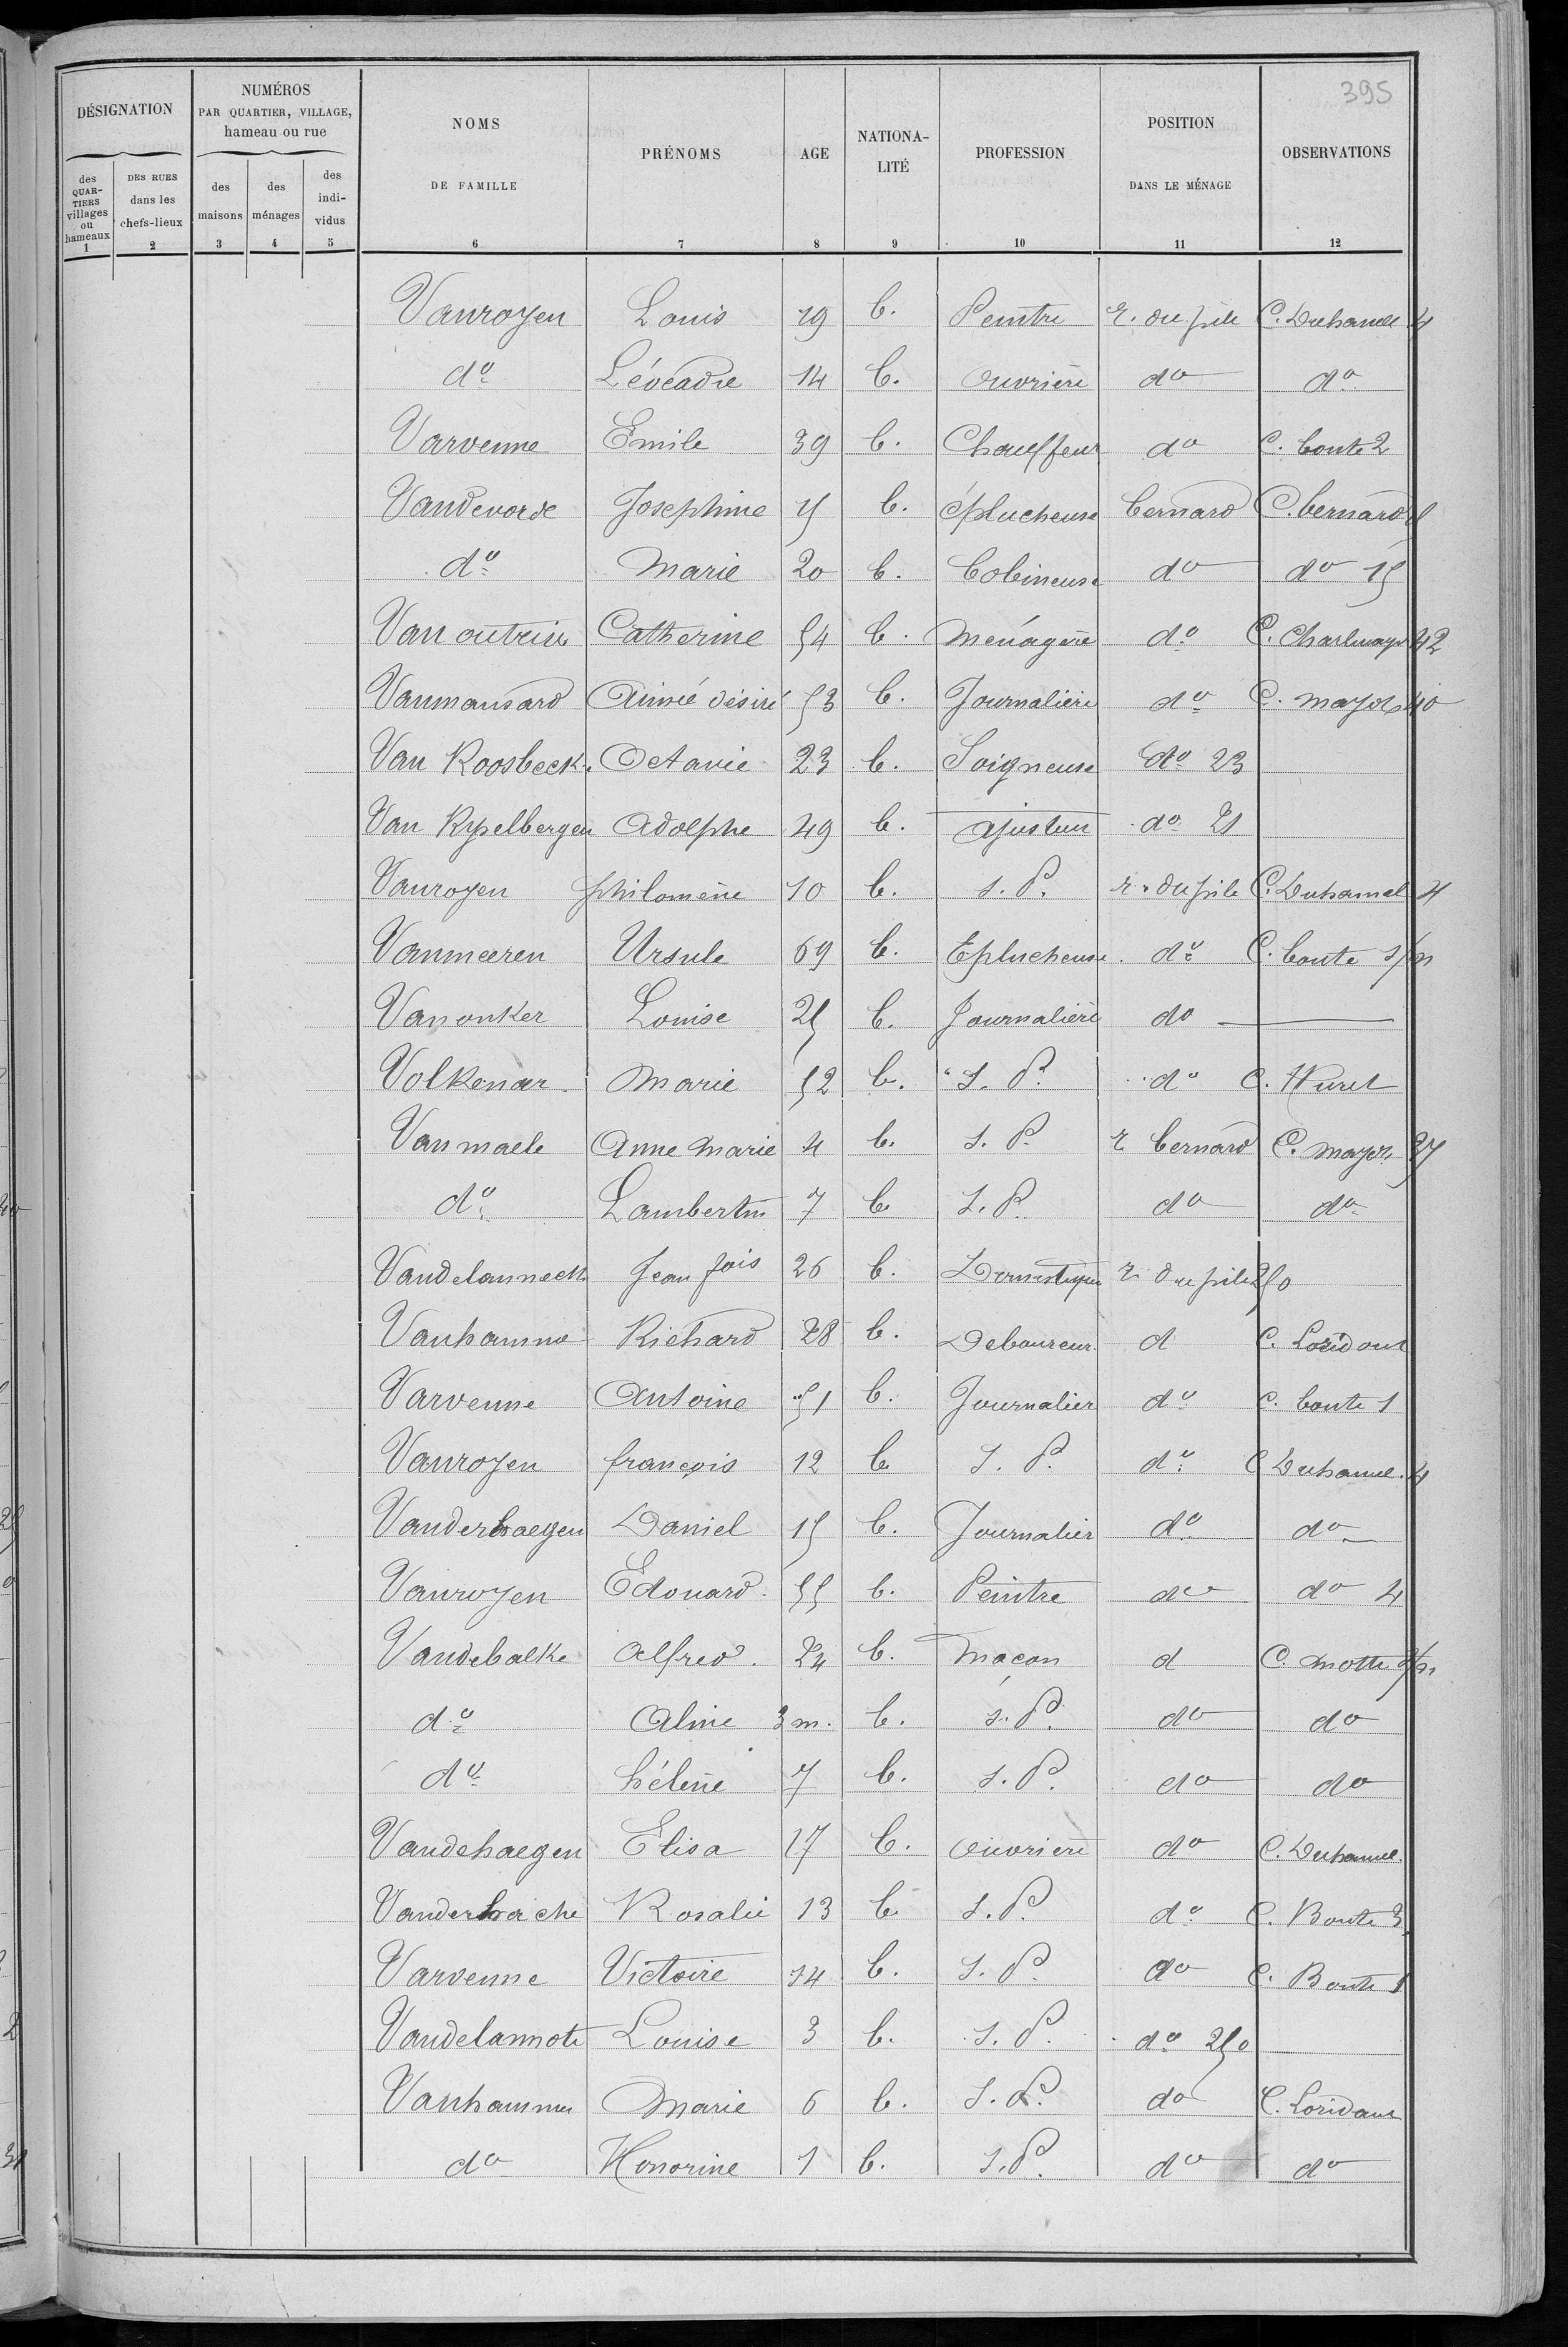 395
DÉSIGNATION
NUMÉROS
PAR QUARTIER, VILLAGE,
hameau ou rue
NOMS
DE FAMILLE
PRÉNOMS
AGE
NATIONA-
LITÉ
PROFESSION
POSITION
DANS LE MÉNAGE
OBSERVATIONS
des
QUAR-
TIERS
villages
ou
hameaux
DES RUES
dans les
chefs-lieux
des
maisons
des
ménages
des
indi-
vidus
1 2 3 4 5 6 7 8 9 10 11 12
Vanroyen Louis 19 b. Peintre r. du pile C. Duhamel 4
do Léocadie 14 b. Ouvrière do do
Varvenne Emile 39 b. Chauffeur do C. bonte 2
Vandevorde Josephine 15 b. épLucheuse bernard C. bernard
do Marie 20 b. bobineuse do do 15
Van outrive Catherine 54 b. Menágère do C. Charlemagne 42
Vanmansard Aimée désiré 53 b. Journalière do C. mayer 40
Van Roosbeck Octavie 23 b. Soigneuse do 23
Van Rysselbergen Adolphe 49 b. ajusteur do 21
Vanroyen philomène 10 b. s. P. r. du pile C. Duhamel 4
Vanmeeren Ursule 69 b. Eplucheuse do C. bonte s/n
Vanonker Louise 25 b. Journalière do
Volkenar Marie 52 b. S. P. do C. Huret
Vanmaele Anne Marie 4 b. S. P. r bernard C. mayer 37
do Lambertine 7 b. S. P. do do
Vandelanneck Jean fois 26 b. Domestique r. du pile 250
Vanhamme Richard 28 b. Deboureur d C. Loridant
Varvenne Antoine 51 b. Journalier do C. bonte 1
Vanroyen françois 12 b. S. P. do C Duhamel. 4
Vanderhaegen Daniel 15 b. Journalier do do
Vanroyen Edouard 55 b. Peintre do do 4
Vandebalke Alfred 24 b. Maçon d C. Motte s/n
do Aline 3 m. b. S. P. do do
do hélène 7 b. S. P. do do
Vandehaegen Elisa 17 b. Ouvrière do C. Duhamel.
Vanderhache Rosalie 13 b. S. P. do C. Bonte 3
Varvenne Victoire 14 b. S. P. do C. Bonte 1
Vandelannote Louise 3 b. S. P. do 250
Vanhamme Marie 6 b. S. P. do C. Loridant
do Honorine 1 b. S. P. do do